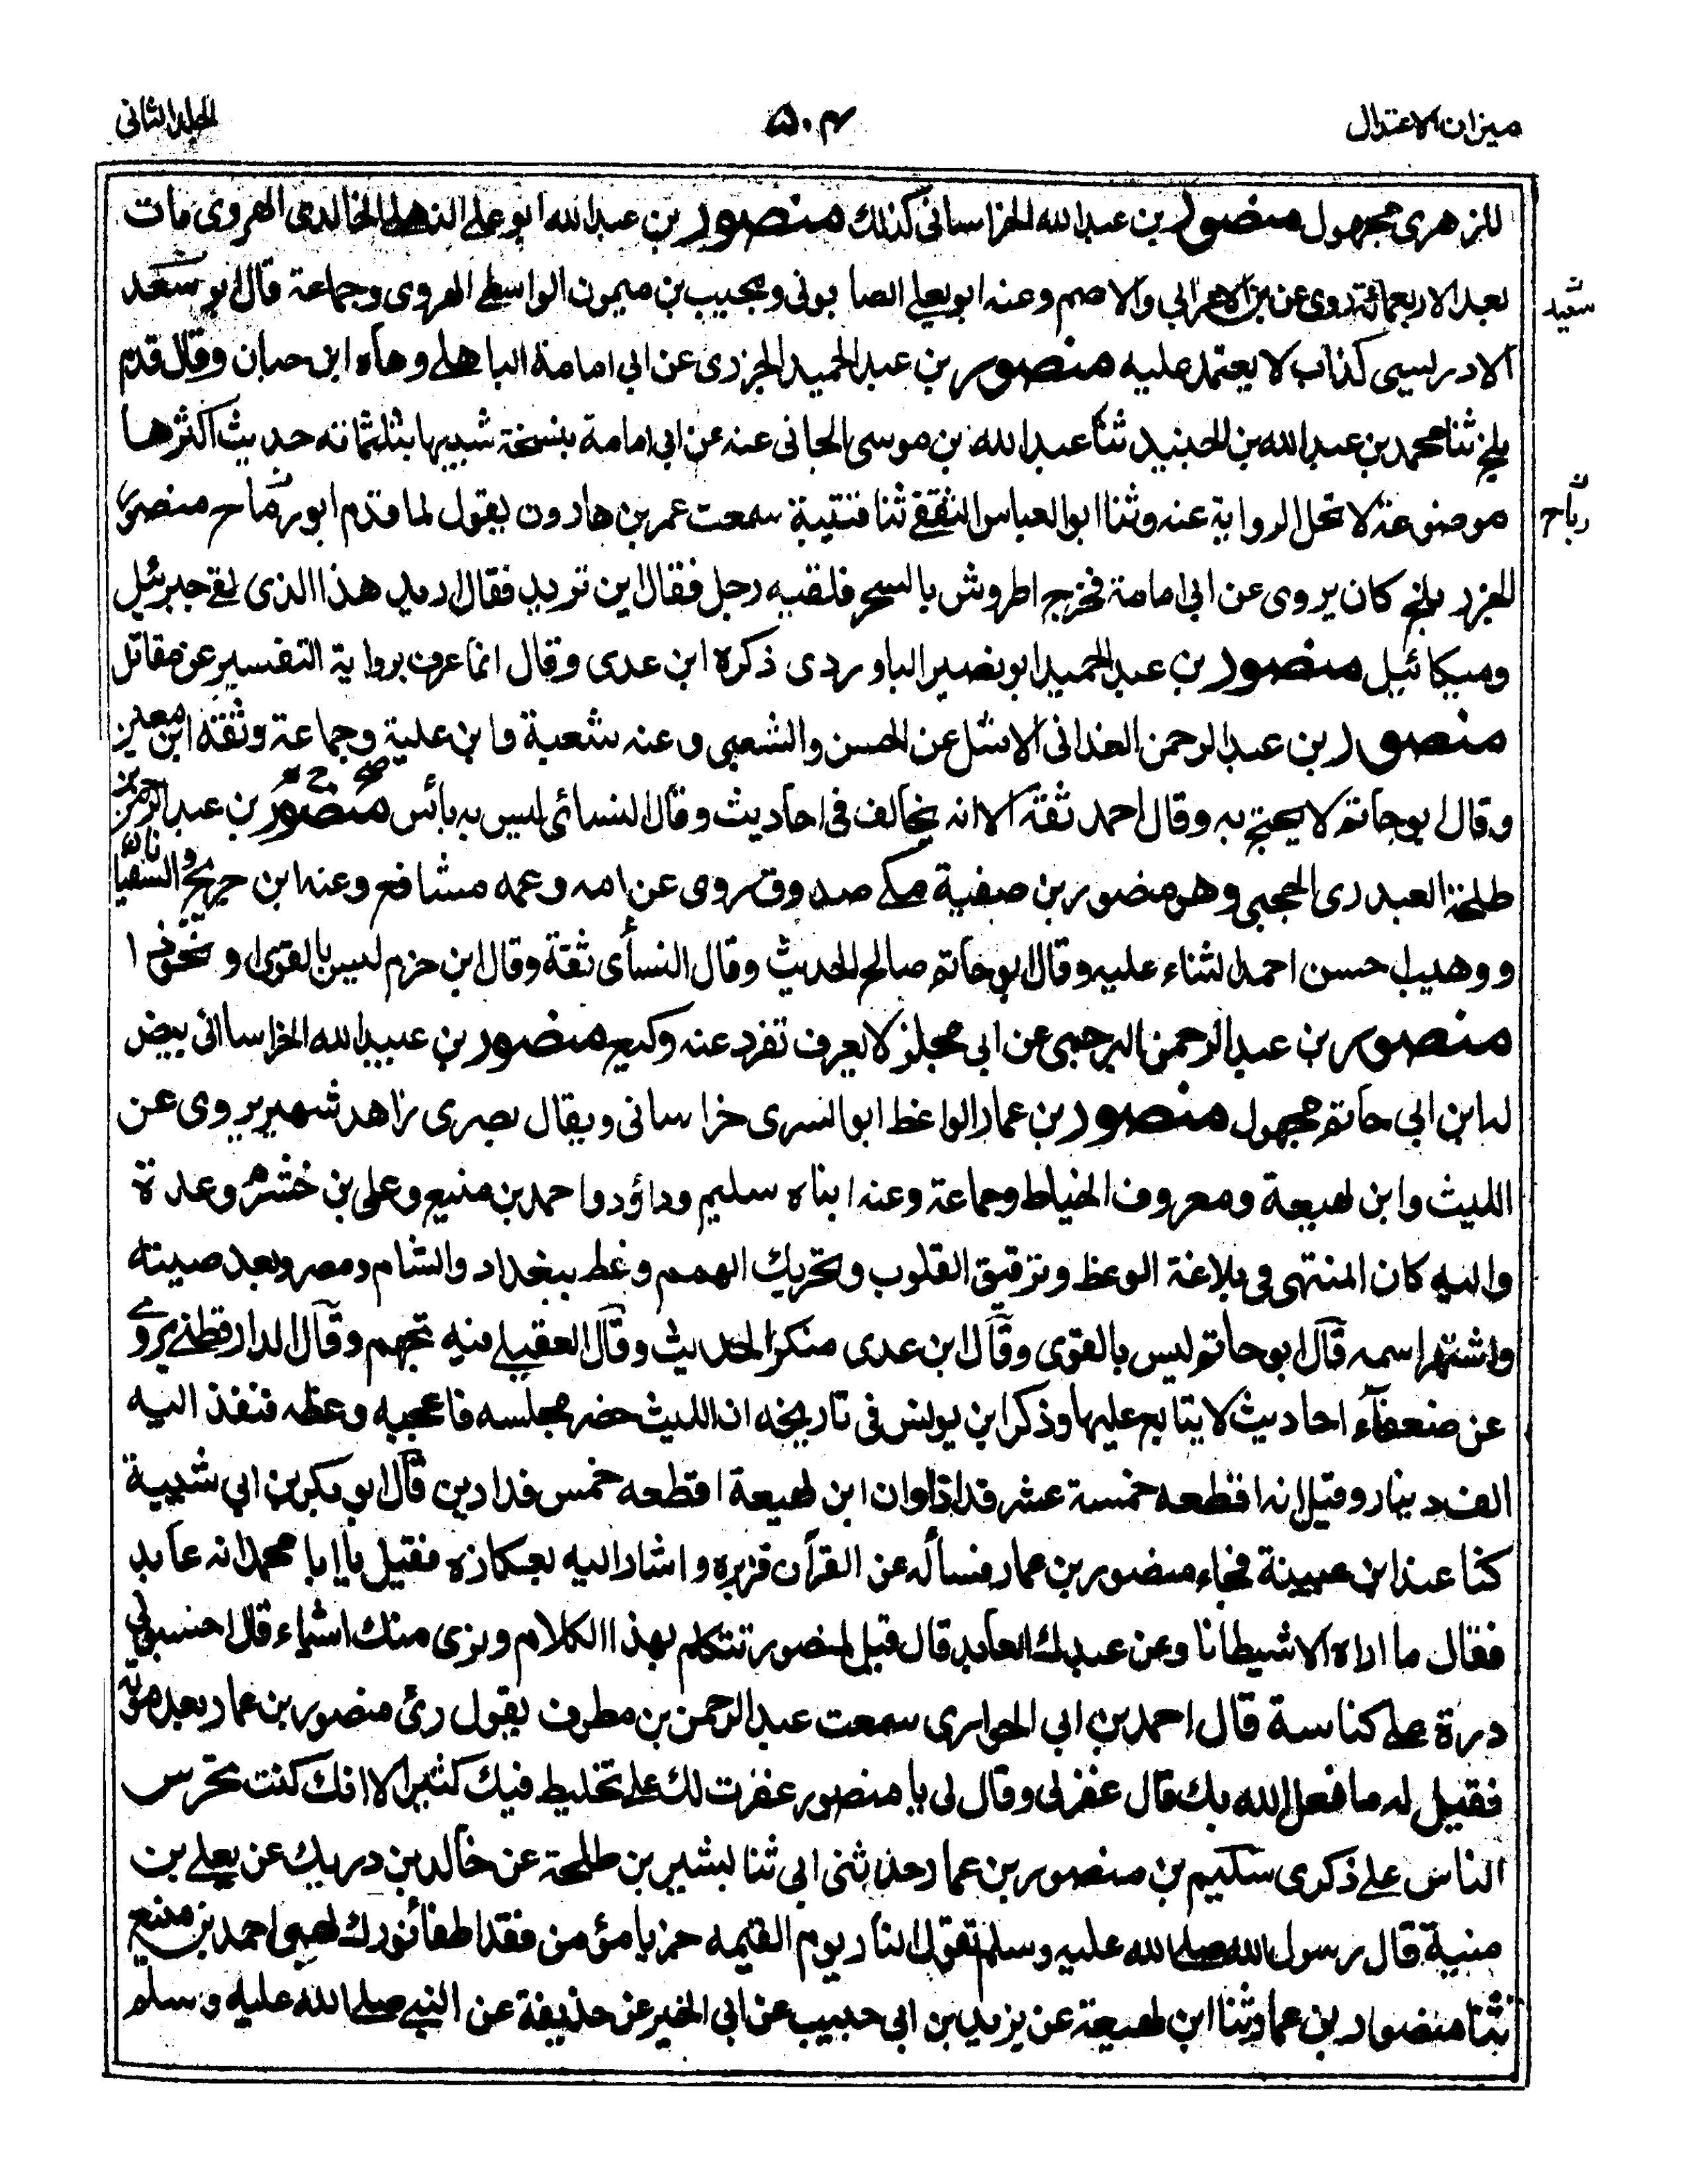 ميزان الاعتدال
۵۰۴
المجلد الثانی
للزهری مجهول منصور بن عبدالله الخراسانی كذلك منصور بن عبدالله ابو علی الذهلی الخالدی الهروی مات
بعد الاربعمائة روی عن ابن الاعرابی والاصم وعنه ابو يعلی الصابونی و نجيب بن ميمون الواسطی الهروی وجماعة قال ابو سعد
سعيد
الادريسی كذاب لا يعتمد عليه منصور بن عبدالحميد الجزری عن ابی امامة الباهلی وهاه ابن حبان وقال قدم
بلخ ثنا محمد بن عبدالله بن الجنيد ثنا عبدالله بن موسی الجانی عنه عن ابی امامة بنسخة شبيها بثلثمائه حديث اكثرها
موضوعة لا تحل الرواية عنه وثنا ابو العباس الثقفی ثنا قتيبة سمعت عمر بن هارون يقول لما قدم ابو رماح منصور
رباح
الجزر بلخ كان يروی عن ابی امامة فخرج اطروش بالسحر فلقيه رجل فقال اين تريد فقال اريد هذا الذی لقی جبرئيل
وميكائيل منصور بن عبدالحميد ابو نصير الباوردی ذكره ابن عدی وقال انما عرف برواية التفسير عن مقاتل
منصور بن عبدالرحمن الغدانی الاشل عن الحسن والشعبی وعنه شعبة وابن علية وجماعة وثقه ابن معين
وقال ابو حاتم لا يحتج به وقال احمد ثقة الا انه يخالف فی احاديث وقال النسائی ليس به بأس منصور بن عبدالرحمن بن
طلحة العبدری الحجبی وهو منصور بن صفية مكی صدوق روی عن امه وعمه مسافع وعنه ابن جريج والسفيانان
ووهيب حسن احمد الثناء عليه وقال ابو حاتم صالح الحديث وقال النسأی ثقة وقال ابن حزم ليس بالقوی
منصور بن عبدالرحمن البرجمی عن ابی مجلز لا يعرف تفرد عنه وكيع منصور بن عبيدالله الخراسانی بيض
له ابن ابی حاتم مجهول منصور بن عمار الواعظ ابو السری خراسانی ويقال بصری زاهد شهير يروی عن
الليث وابن لهيعة ومعروف الخياط وجماعة وعنه ابناه سليم وداؤد واحمد بن منيع وعلی بن خشرم وعدة
واليه كان المنتهی فی بلاغة الوعظ وترقيق القلوب وتحريك الهمم وعظ ببغداد والشام ومصر وبعد صيته
واشتهر اسمه قال ابو حاتم ليس بالقوی وقال ابن عدی منكر الحديث وقال العقيلی فيه تجهم وقال الدارقطنی يروی
عن ضعفآء احاديث لا يتابع عليها وذكر ابن يونس فی تاريخه ان الليث حضر مجلسه فاعجبه وعظه فنفذ اليه
الف دينار وقيل انه اقطعه خمسة عشر فدانا وان ابن لهيعة اقطعه خمس فدادين قال ابو بكر بن ابی شيبة
كنا عند ابن عيينة فجاء منصور بن عمار فسأله عن القرآن فزبره واشار اليه بعكازه فقيل يا ابا محمد انه عابد
فقال ما اراه الا شيطانا وعن عبدك العابد قال قيل لمنصور تتكلم بهذا الكلام ونری منك اشياء قال احسبونی
درة علی كناسة قال احمد بن ابی الحواری سمعت عبدالرحمن بن مطرف يقول رئی منصور بن عمار بعد موته
فقيل له ما فعل الله بك قال غفر لی وقال لی يا منصور غفرت لك علی تخليط فيك كثير الا انك كنت تحرس
الناس علی ذكری سليم بن منصور بن عمار حدثنی ابی ثنا بشير بن طلحة عن خالد بن دريك عن يعلی بن
منية قال رسول الله صلی الله عليه وسلم تقول النار يوم القيمه جز يا مؤمن فقد اطفأ نورك لهبی احمد بن منيع
ثنا منصور بن عمار ثنا ابن لهيعة عن يزيد بن ابی حبيب عن ابی الخير عن حذيفة عن النبی صلی الله عليه وسلم